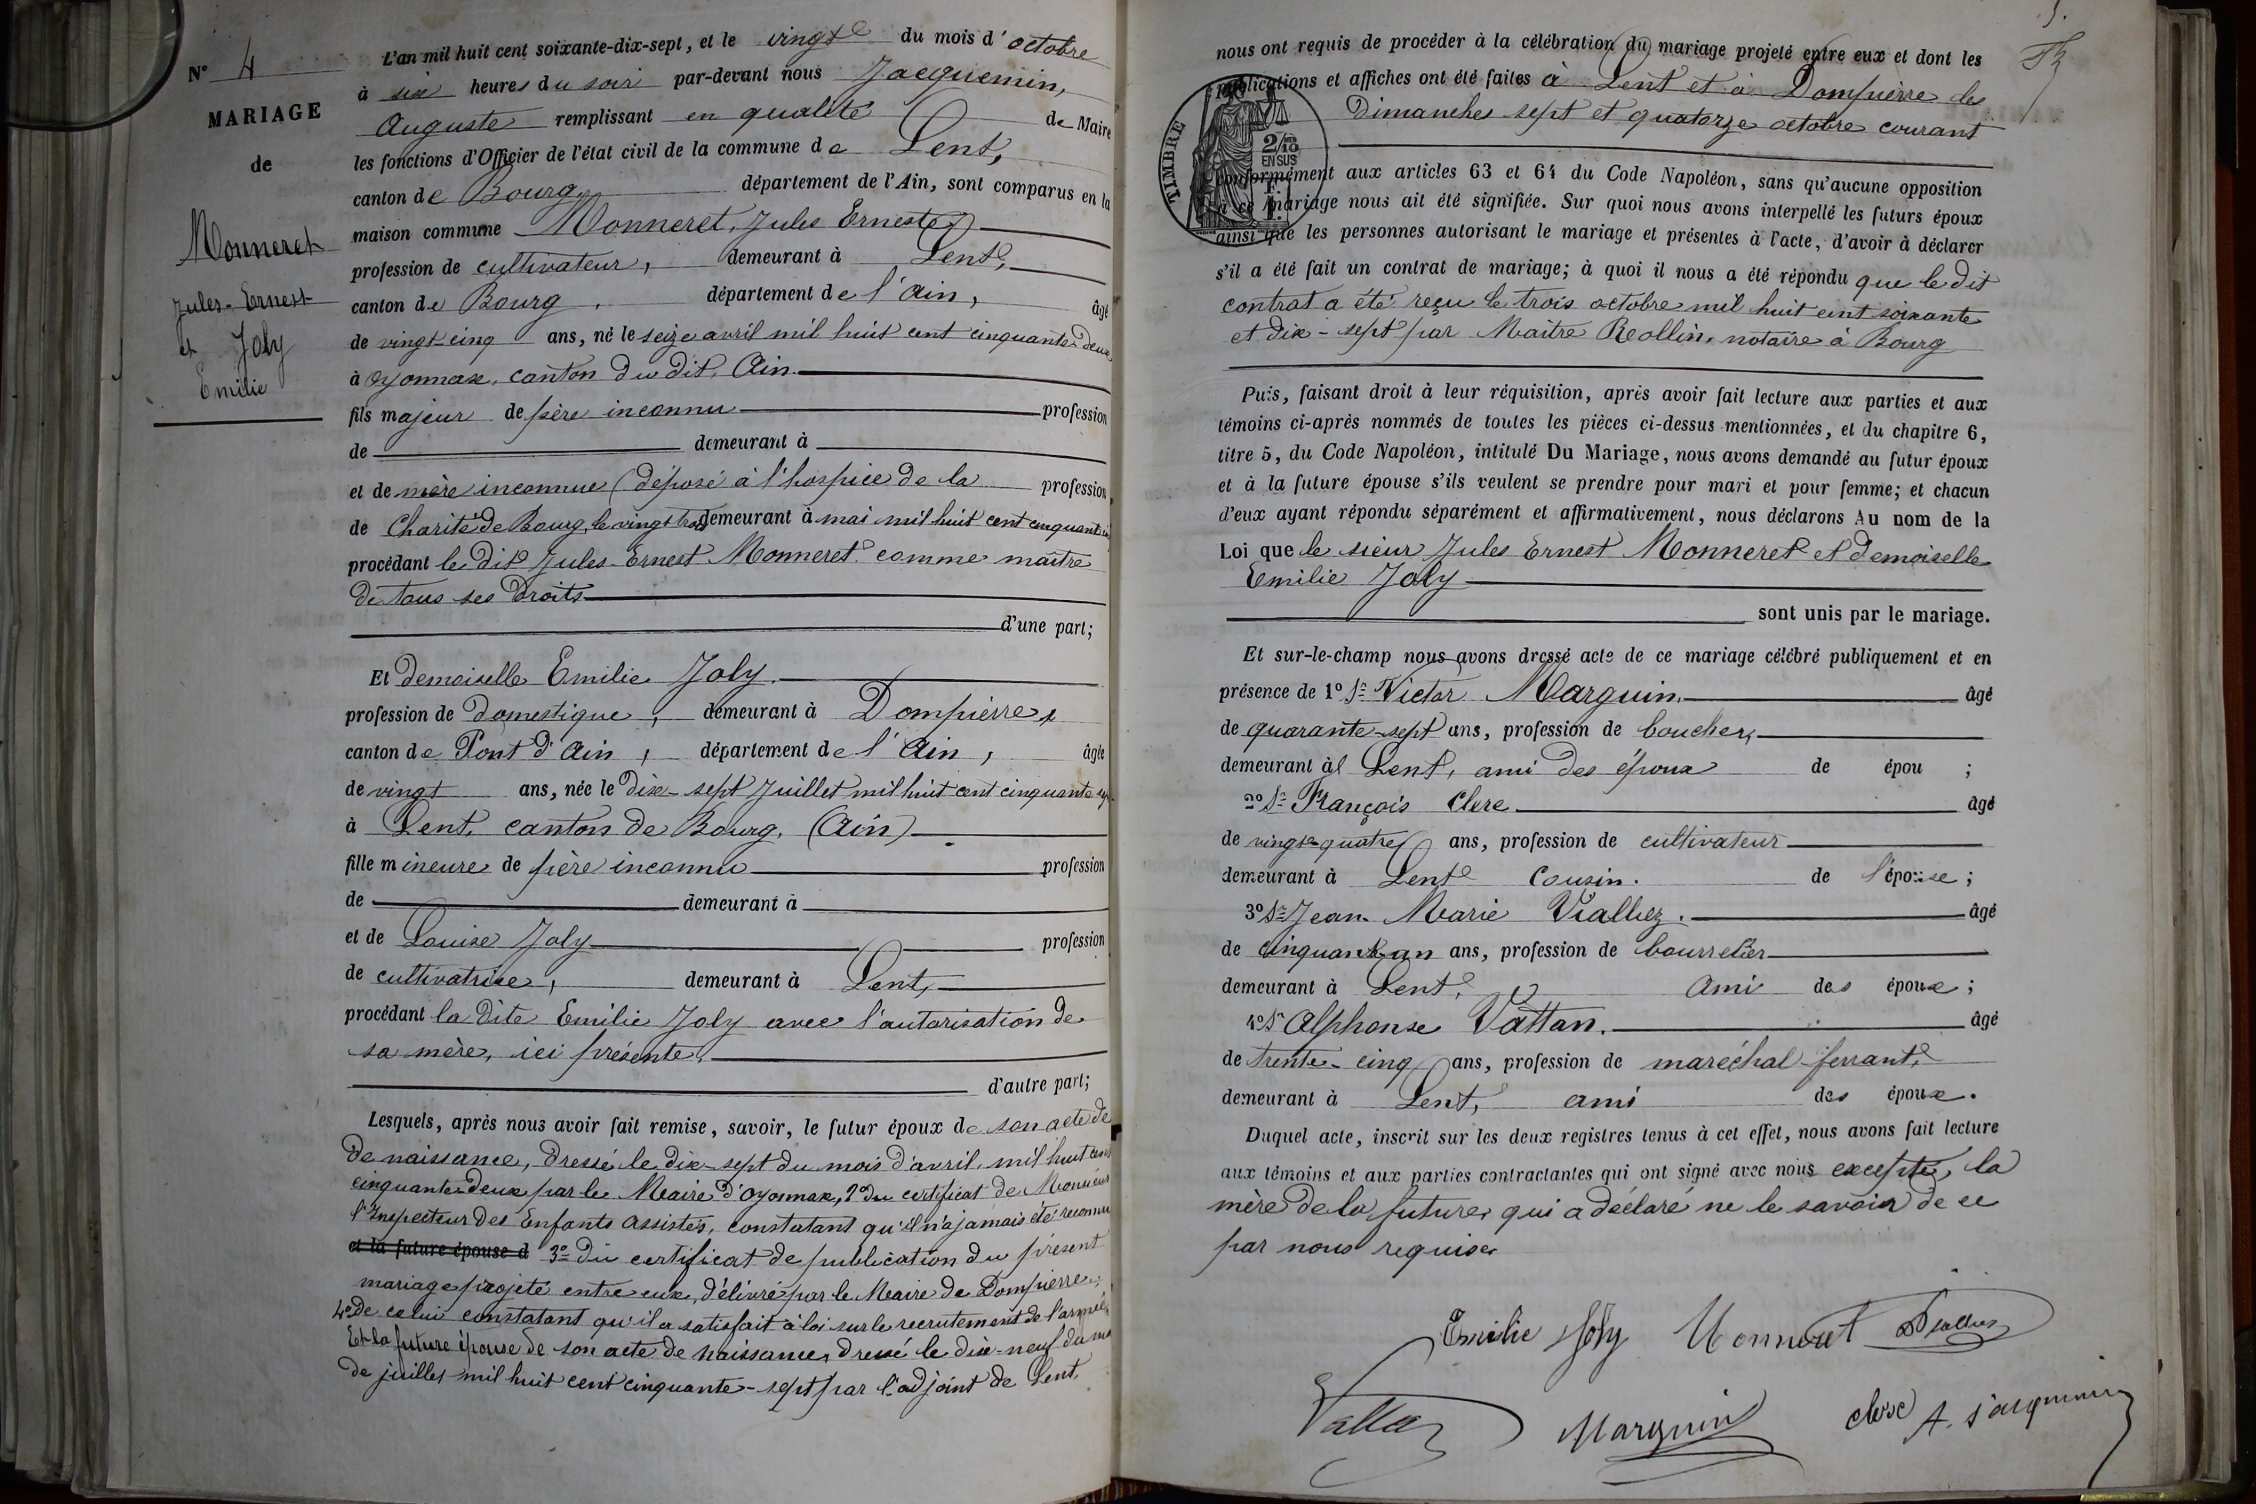 N° 4
MARIAGE
de
Monneret
Jules-Ernest
et Joly
Emilie
L'an mil huit cent soixante-dix-sept, et le vingt du mois d'octobre
à six heures du soir par-devant nous Jacquemin,
Auguste remplissant en qualité de Maire
les fonctions d'Officier de l'état civil de la commune de Lent,
canton de Bourg, département de l'Ain, sont comparus en la
maison commune Monneret, Jules Ernest
profession de cultivateur, demeurant à Lent,
canton de Bourg, département de l'Ain, âgé
de vingt-cinq ans, né le seize avril mil huit cent cinquante-deux
à Oyonnax, canton du dit, Ain.
fils majeur de père inconnu profession
de demeurant à
et de mère inconnue (déposé à l'hospice de la profession
de Charité de Bourg, le vingt trois demeurant à mai mil huit cent cinquante
procédant le dit Jules-Ernest Monneret comme maître
de tous ses droits
d'une part;
Et demoiselle Emilie Joly.
profession de domestique, demeurant à Dompierre,
canton de Pont d'Ain, département de l'Ain, âgée
de vingt ans, née le dix-sept Juillet mil huit cent cinquante sept
à Lent, canton de Bourg, (Ain)
fille mineure de père inconnu profession
de demeurant à
et de Louise Joly profession
de cultivatrice, demeurant à Lent,
procédant la dite Emilie Joly avec l'autorisation de
sa mère, ici présente.
d'autre part;
Lesquels, après nous avoir fait remise, savoir, le futur époux de son acte de
de naissance, dressé le dix-sept du mois d'avril, mil huit cent
cinquante-deux par le Maire d'Oyonnax, 2° du certificat de Monsieur
l'Inspecteur des Enfants assistés, constatant qu'il n'a jamais été reconnu
et la future épouse d 3° du certificat de publication du présent
mariage projeté entre eux, délivré par le Maire de Dompierre;
4° de celui constatant qu'il a satisfait à loi sur le recrutement de l'armée,
Et la future épouse de son acte de naissance, dressé le dix-neuf du mois
de juillet mil huit cent cinquante-sept par l'adjoint de Lent.
5.
nous ont requis de procéder à la célébration du mariage projeté entre eux et dont les
publications et affiches ont été faites à Lent et à Dompierre les
Dimanches sept et quatorze octobre courant
TIMBRE
2/10
EN SUS
conformément aux articles 63 et 64 du Code Napoléon, sans qu'aucune opposition
à ce mariage nous ait été signifiée. Sur quoi nous avons interpellé les futurs époux
ainsi que les personnes autorisant le mariage et présentes à l'acte, d'avoir à déclarer
s'il a été fait un contrat de mariage; à quoi il nous a été répondu que le dit
contrat a été reçu le trois octobre mil huit cent soixante
et dix-sept par Maître Reollin, notaire à Bourg
Puis, faisant droit à leur réquisition, après avoir fait lecture aux parties et aux
témoins ci-après nommés de toutes les pièces ci-dessus mentionnées, et du chapitre 6,
titre 5, du Code Napoléon, intitulé Du Mariage, nous avons demandé au futur époux
et à la future épouse s'ils veulent se prendre pour mari et pour femme; et chacun
d'eux ayant répondu séparément et affirmativement, nous déclarons Au nom de la
Loi que le sieur Jules Ernest Monneret et demoiselle
Emilie Joly
sont unis par le mariage.
Et sur-le-champ nous avons dressé acte de ce mariage célébré publiquement et en
présence de 1° Sr Victor Marguin. âgé
de quarante-sept ans, profession de boucher,
demeurant à Lent, ami des époux de épou ;
2° Sr François Clerc âgé
de vingt-quatre ans, profession de cultivateur
demeurant à Lent cousin. de l'épouse;
3° Sr Jean-Marie Vialliez. âgé
de cinquante-un ans, profession de bourrelier
demeurant à Lent, ami des époux;
4° Sr Alphonse Vattan. âgé
de trente-cinq ans, profession de maréchal-ferrant,
demeurant à Lent, ami des époux.
Duquel acte, inscrit sur les deux registres tenus à cet effet, nous avons fait lecture
aux témoins et aux parties contractantes qui ont signé avec nous excepté, la
mère de la future, qui a déclaré ne le savoir de ce
par nous requise
Emilie Joly Monneret
Marguin Clerc A. Jacquemin